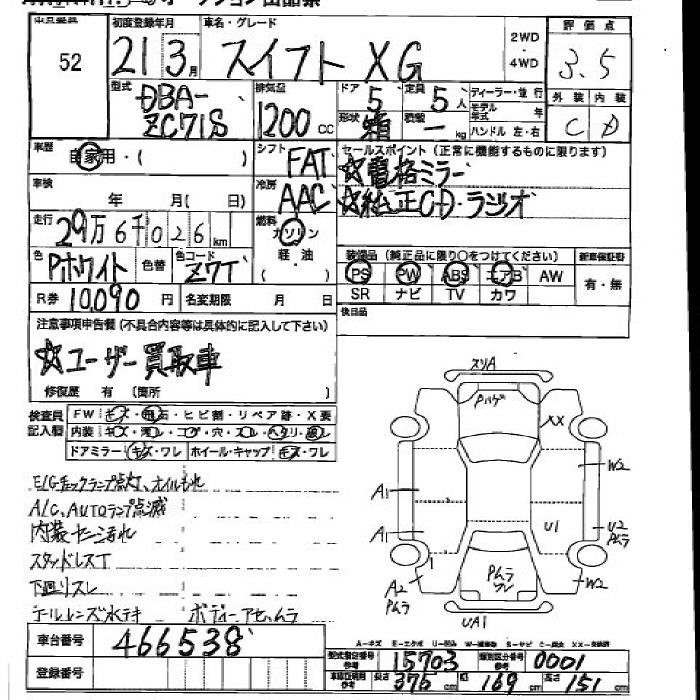 出品番号 初度登録年月 車名・グレード 評価点
52 21 3月 スイフト XG 2WD ・ 4WD 3.5
型式 DBA-ZC71S 排気量 1200cc ドア 5 定員 5人 ディーラー・並行
形状 箱 積載 ー kg モデル年式 年 ハンドル 左・右 外装 C 内装 D
車歴 自家用・( ) シフト FAT セールスポイント(正常に機能するものに限ります)
☆電格ミラー
車検 年 月(日) 冷房 AAC ☆純正CD・ラジオ
走行 29万6千026km 燃料 ガソリン 軽・油 ( )
色 Pホワイト 色替 色コード Z7T 装備品(純正品に限り○をつけてください) 新車保証書
PS PW ABS エアB AW 有・無
R券 10,090円 名変期限 月 日 SR ナビ TV カワ
後日品
注意事項申告欄(不具合内容等は具体的に記入して下さい)
☆ユーザー買取車
修復歴 有(箇所 )
検査員記入欄 FW キズ・飛石・ヒビ割・リペア跡・X要
内装 キズ・汚レ・コゲ・穴・スレ・ヘタリ・破レ
ドアミラー キズ・ワレ ホイール・キャップ キズ・ワレ
E/Gチェックランプ点灯、オイルもれ
A/C、AUTOランプ点滅
内装ヤニ汚れ
スタッドレスT
下回リスレ
テールレンズ水テキ ボディーアセ、ムラ
スリA
Pハゲ
XX
W2
A1
A1
U1
U2 Pムラ
A2 Pムラ
Pムラ ワレ
W2
UA1
A-キズ E-エクボ U-凹み W-補修跡 S-サビ C-腐食 XX-交換済
車台番号 466538
型式指定番号 参考 15703 類別区分番号 参考 0001
登録番号 車検証記載 参考 長さ 375cm 幅 169cm 高さ 151cm